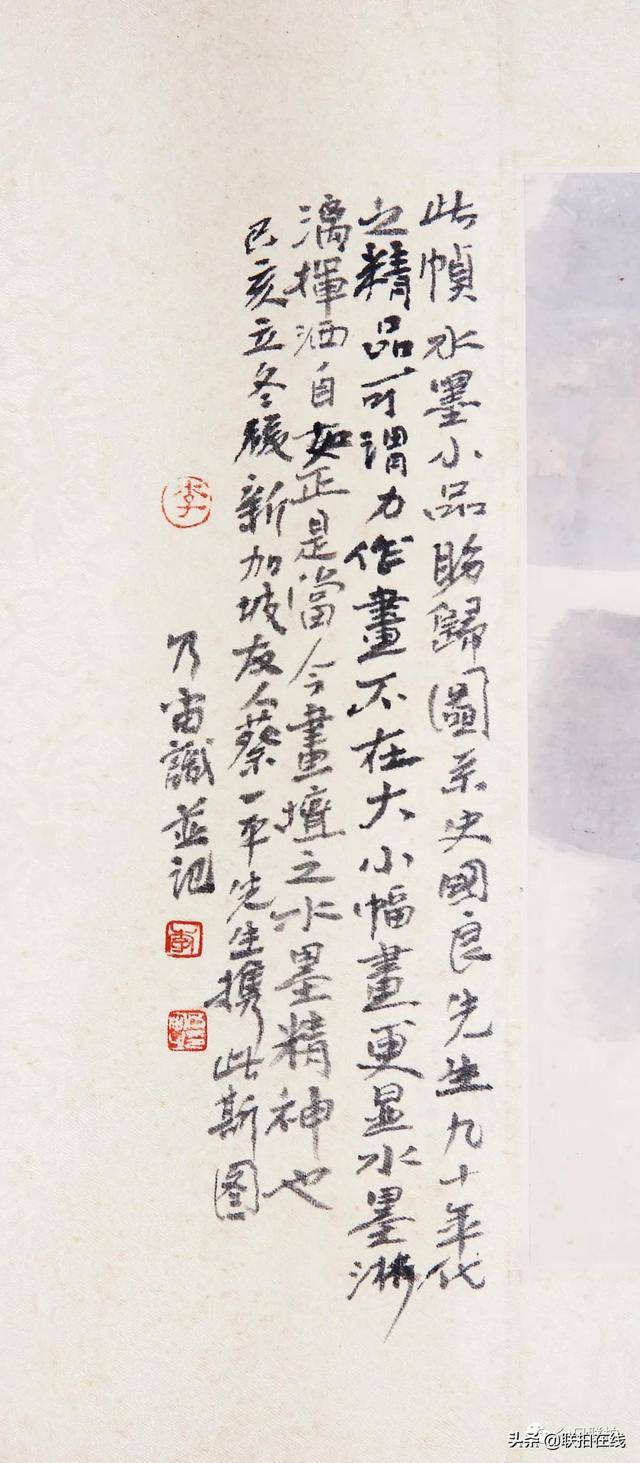 此幀水墨小品盼歸圖系史國良先生九十年代
之精品可谓力作畫不在大小幅畫更显水墨淋
漓揮洒自如正是當今畫壇之水墨精神也
己亥立冬後新加坡友人蔡一平先生携此斯图
乃宙識並記
李
李
头条 @联拍在线